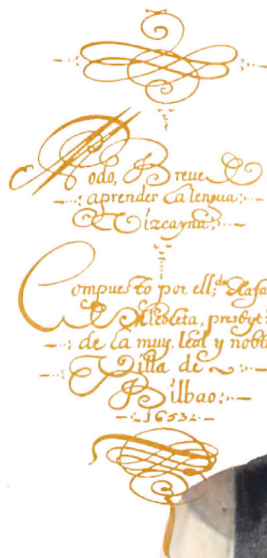 Modo, Breve
aprender la lengua
Vizcayna;
Compuesto por el l.do Rafa
el Micoleta, presbyt
de la muy leal y nobl
Villa de
Bilbao;
1653